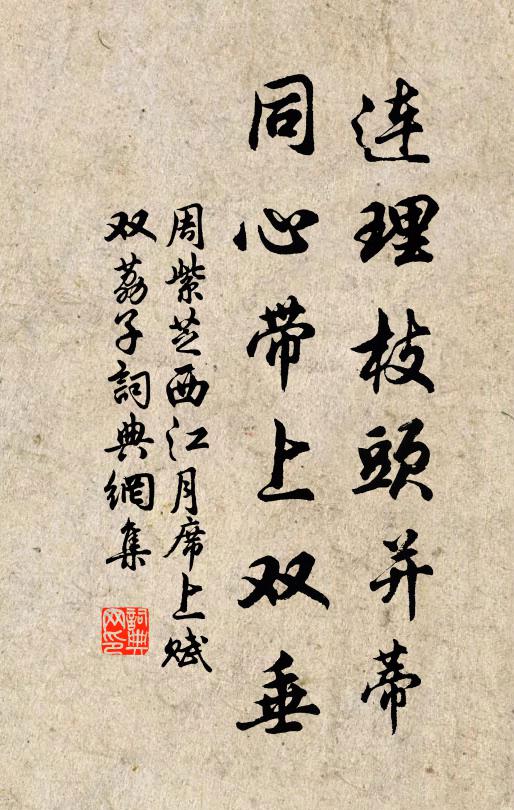 连理枝頭并蒂
同心带上双垂
周紫芝西江月席上赋
双荔子詞典網集
詞典网印